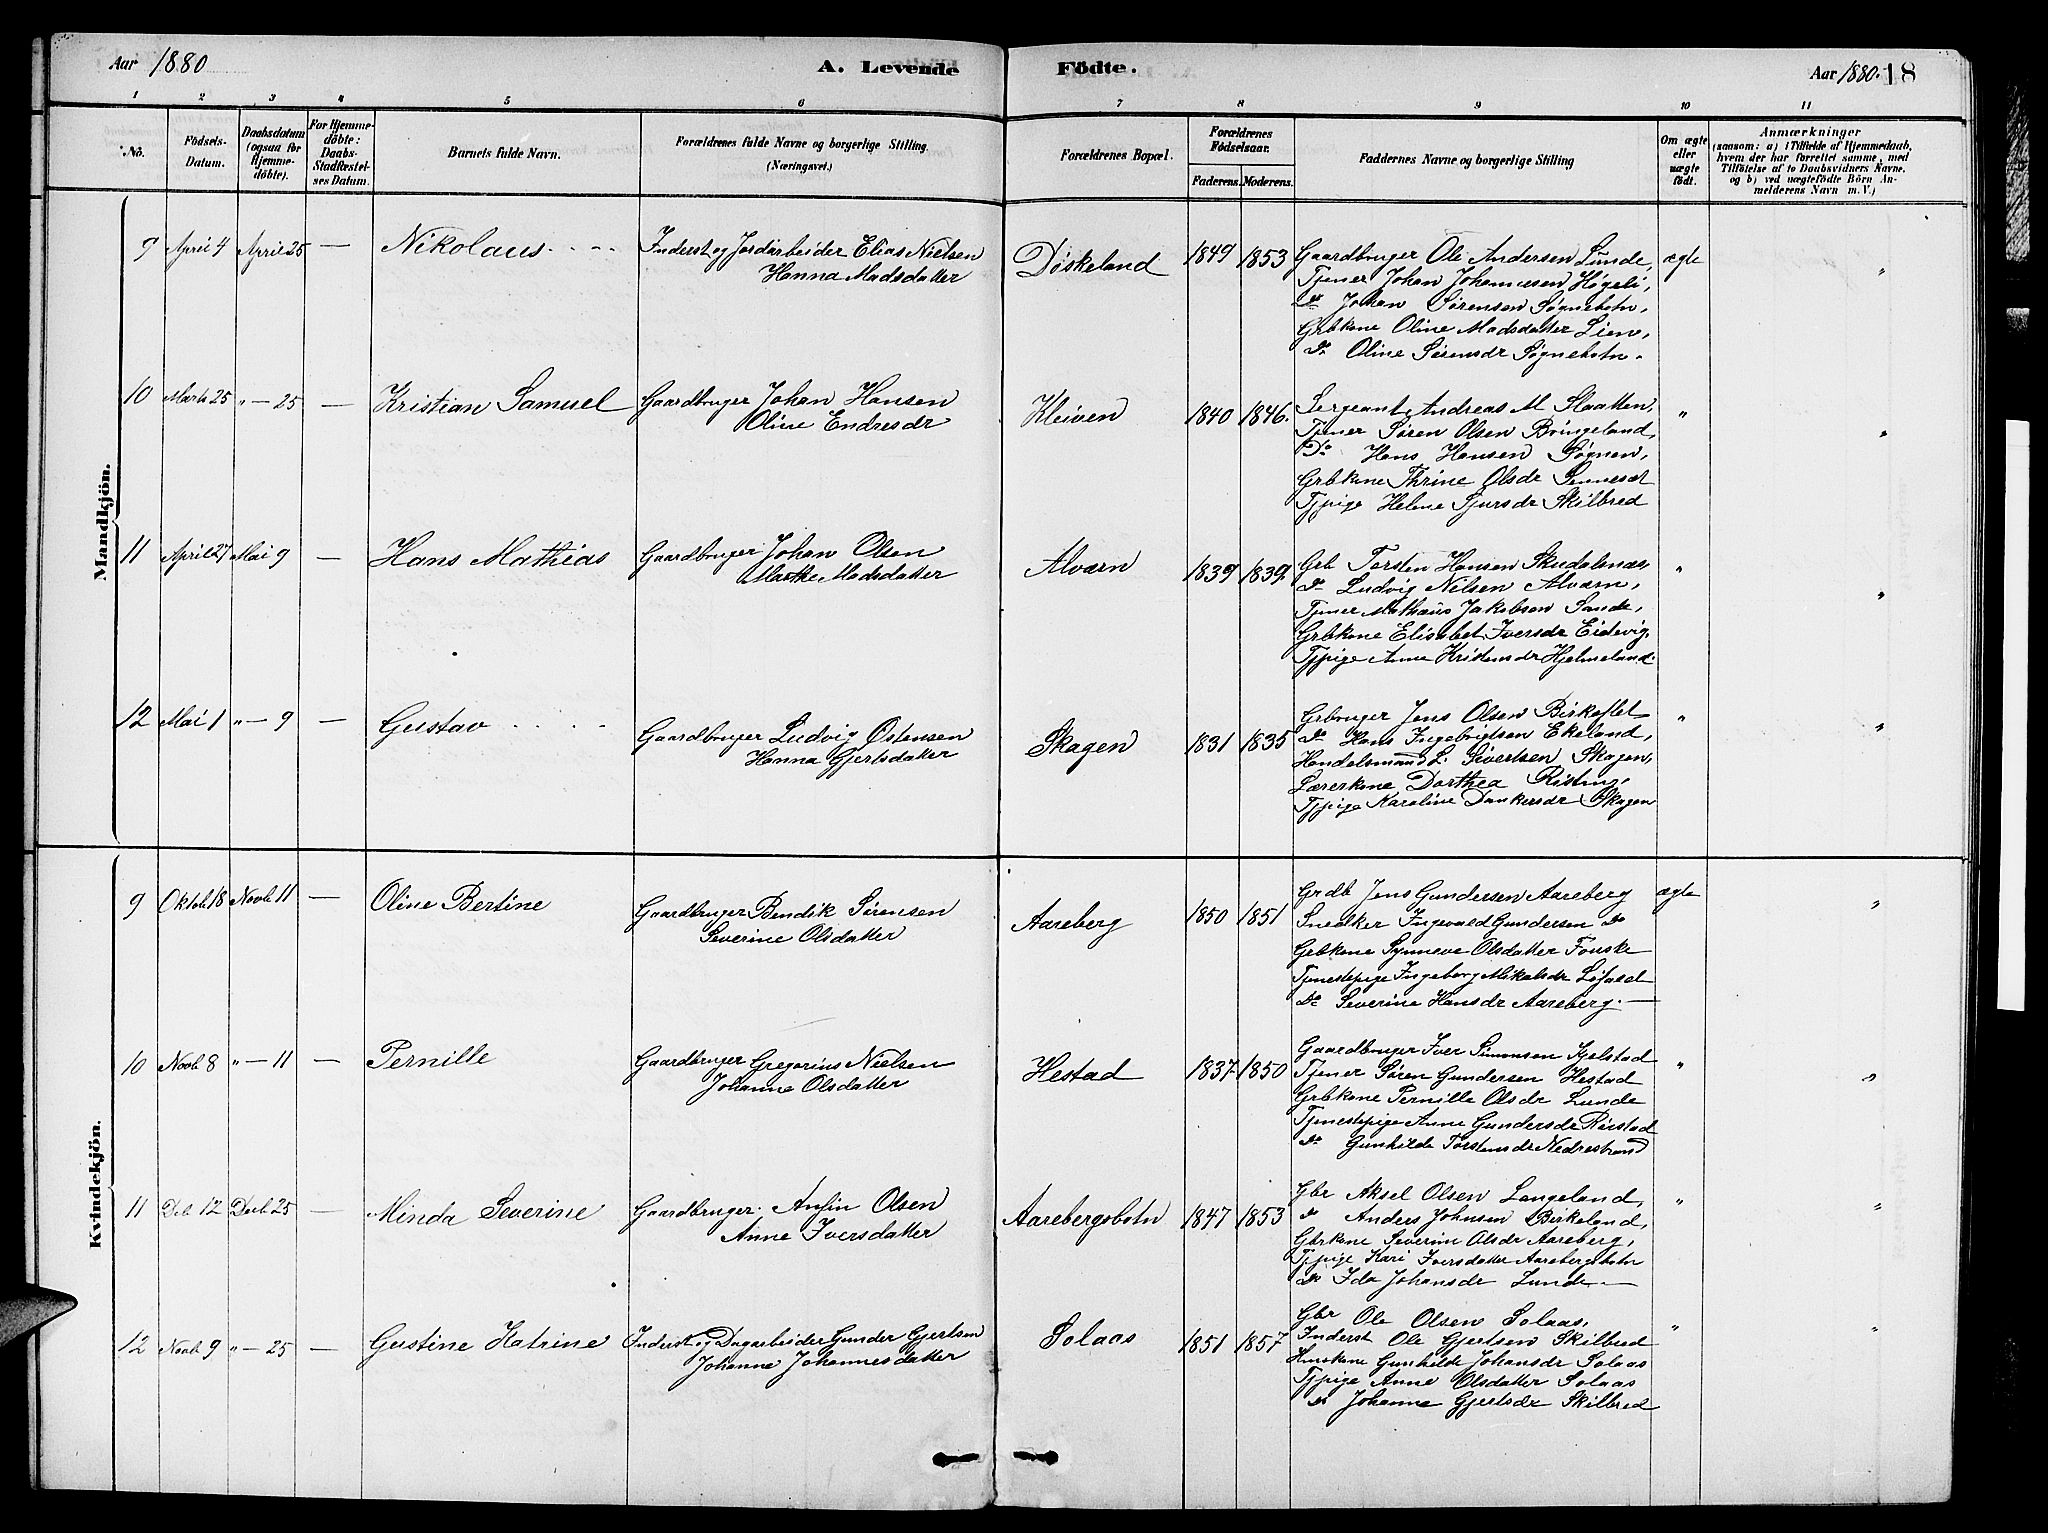 Aar 1880
A. Levende Födte.
Aar 1880. 18
1 2 3 4 5 6 7 8 9 10 11
No.
Födsels-Datum.
Daabsdatum (ogsaa for Hjemme-döbte).
For Hjemme-döbte: Daabs-Stadfæstel-ses Datum.
Barnets fulde Navn.
Forældrenes fulde Navne og borgerlige Stilling. (Næringsvei.)
Forældrenes Bopæl.
Forældrenes Födselsaar.
Faderens. Moderens.
Faddernes Navne og borgerlige Stilling
Om ægte eller uægte födt.
Anmærkninger
(saasom: a) i Tilfælde af Hjemmedaab, hvem der har forrettet samme, med Tilföielse af to Daabsvidners Navne, og b) ved uægtefödte Börn An-melderens Navn m. V.)
Mandkjön.
9 April 4 April 25 — Nikolaus
Inderst og Jordarbeider Elias Nielsen
Hanna Madsdatter
Döskeland 1849 1853
Gaardbruger Ole Andersen Lunde,
Tjener Johan Johannesen Høgeli,
Do Johan Sørensen Søgnebotn,
Grbkone Oline Madsdatter Lien,
Do Oline Sørensdr Søgnebotn.
ægte "
10 Marts 25 " — 25 — Kristian Samuel
Gaardbruger Johan Hansen
Oline Endresdr
Kleiven 1840 1846.
Sergeant Andreas M Slaatten,
Tjener Søren Olsen Bringeland,
Do Hans Hansen Søgnen,
Grbkone Thrine Olsdr Sennesæt
Tjpige Helene Sjursdr Skilbred
" "
11 April 27 Mai 9 — Hans Mathias
Gaardbruger Johan Olsen
Marthe Madsdatter
Alværn 1839 1839
Grb Torsten Hansen Skudalsnæs,
Do Ludvig Nielsen Alværn,
Tjener Mathæus Jakobson Sande,
Grbkone Elisabet Iversdr Eidevig,
Tjpige Anne Kristensdr Hjelmeland.
" "
12 Mai 1 " — 9 — Gustav
Gaardbruger Ludvig Østensen
Hanna Gjertsdatter
Skagen 1831 1835
Grbruger Jens Olsen Birkeflet
Do Hans Ingebrigtsen Ekeland,
Handelsmand L. Sivertsen Skagen,
Lærerkone Dorthea Risting,
Tjpige Karoline Dankersdr Skagen
" "
Kvindekjön.
9 Oktob 18 Novb 11 — Oline Bertine
Gaardbruger Bendik Sørensen
Severine Olsdatter
Aareberg 1850 1851
Grdb Jens Gundersen Aareberg
Snedker Ingevald Gundersen Do
Grbkone Synneve Olsdatter Fouske
Tjenestepige Ingeborg Mikalsdr Løfald
Do Severine Hansdr Aareberg. —
ægte "
10 Novb 8 " — 11 — Pernille
Gaardbruger Gregorius Nielsen
Johanne Olsdatter
Hestad 1837 1850
Gaardbruger Iver Simonsen Kjelstad
Tjener Søren Gundersen Hestad
Grbkone Pernille Olsdr Lunde
Tjenestepige Anne Gundersdr Rørstad
Do Gunhilde Torstensdr Nedrestrand
" "
11 Dcb 12 Decb 25 — Minda Severine
Gaardbruger. Anfin Olsen
Anne Iversdatter
Aarebergsbotn 1847 1853
Gbr Aksel Olsen Langeland,
Do Anders Johnsen Birkeland,
Gbrkone Severine Olsdr Aareberg,
Tjpige Kari Iversdatter Aarebergsbotn
Do Ida Johansdr Lunde —
" "
12 Novb 9 " — 25 — Gustine Katrine
Inderst og Dagarbeider Gunder Gjertsen
Johanne Johannesdatter
Solaas 1851 1857
Gbr Ole Olsen Solaas,
Inderst Ole Gjertsen Skilbred
Huuskone Gunhilde Johansdr Solaas
Tjpige Anne Olsdatter Solaas
Do Johanne Gjertsdr Skilbred
" "